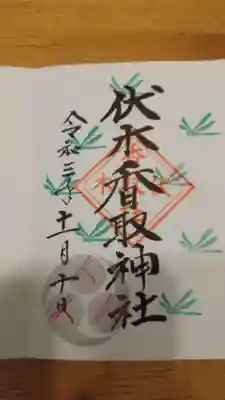 伏木香取神社
令和三年十一月十日